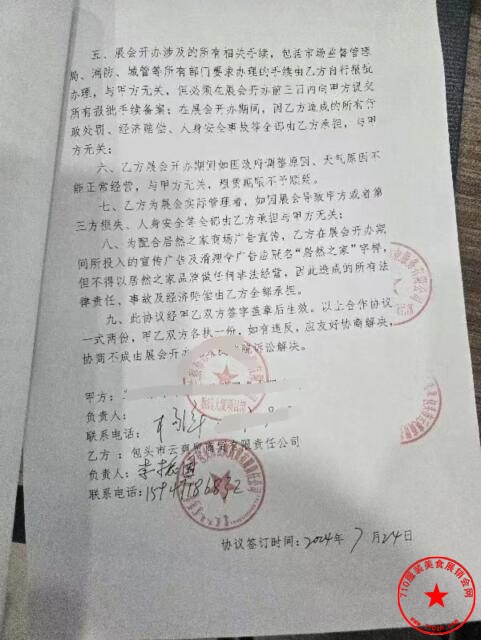 五、展会开办涉及的所有相关手续，包括市场监督管理
局、消防、城管等所有部门要求办理的手续由乙方自行报批
办理，与甲方无关，但必须在展会开办前三日内向甲方提交
所有报批手续备案；在展会开办期间，因乙方造成的所有行
政处罚、经济赔偿、人身安全事故等全部由乙方承担，与甲
方无关；
六、乙方展会开办期间如因政府调整原因、天气原因不
能正常经营，与甲方无关，租赁期限不予顺延。
七、乙方为展会实际管理者，如因展会导致甲方或者第
三方损失、人身安全等全部由乙方承担与甲方无关；
八、为配合居然之家商场广告宣传，乙方在展会开办期
间所投入的宣传广告及清理令广告应冠名“居然之家”字样，
但不得以居然之家品牌做任何非法经营，因此造成的所有法
律责任、事故及经济赔偿由乙方全额承担。
九、此协议经甲乙双方签字盖章后生效。以上合作协议
一式两份，甲乙双方各执一份，如有违反，应友好协商解决，
协商不成由展会开办 诉讼解决。
甲方：
负责人：
联系电话：
乙方：包头市云 有限责任公司
负责人：李振国
联系电话：
协议签订时间：2024年7月24日
710服装美食展销会网